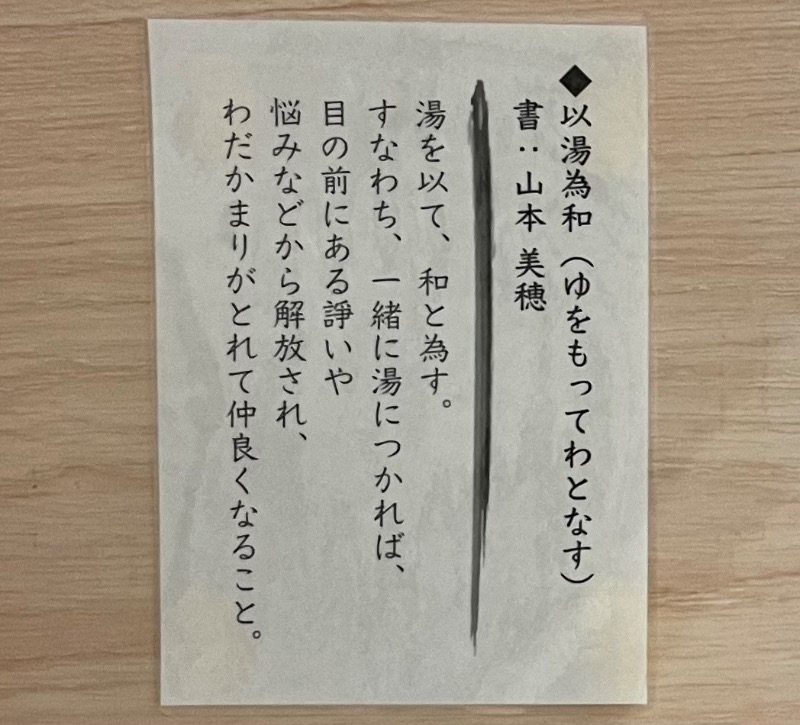 ◆以湯為和（ゆをもってわとなす）
書：山本 美穂
湯を以て、和と為す。
すなわち、一緒に湯につかれば、
目の前にある諍いや
悩みなどから解放され、
わだかまりがとれて仲良くなること。